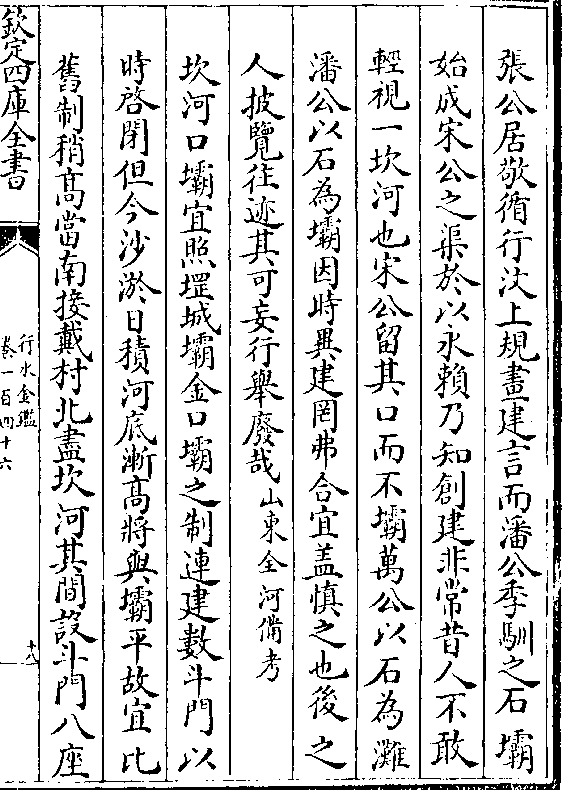 張公居敬循行汶上規畫建言而潘公季馴之石壩
始成宋公之渠於以永賴乃知創建非常昔人不敢
輕視一坎河也宋公留其口而不壩萬公以石為灘
潘公以石為壩因時異建罔弗合宜盖慎之也後之
人披覽往迹其可妄行舉廢哉山東全河備考
坎河口壩宜照堽城壩金口壩之制連建數斗門以
時啓閉但今沙淤日積河底漸髙將與壩平故宜比
舊制稍髙當南接戴村北盡坎河其間設斗門八座
欽定四庫全書
行水金鑑
卷一百四十六
十八